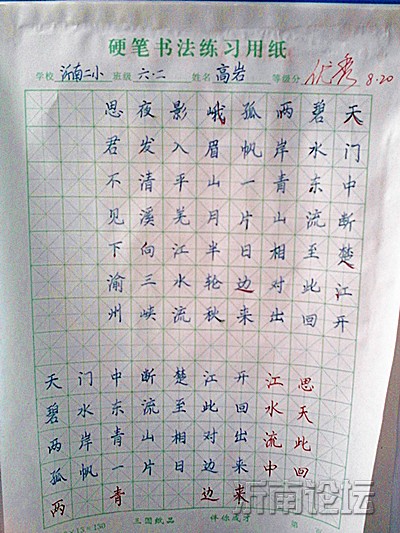 硬笔书法练习用纸
学校 沂南二小 班级 六·二 姓名 高岩 等级分 优秀 8.20
天门中断楚江开
碧水东流至此回
两岸青山相对出
孤帆一片日边来
峨眉山月半轮秋
影入平羌江水流
夜发清溪向三峡
思君不见下渝州
天门中断楚江开江思
碧水东流至此回水天
两岸青山相对出流此
孤帆一片日边来中回
两青边来
伴你成才 第
沂南论坛